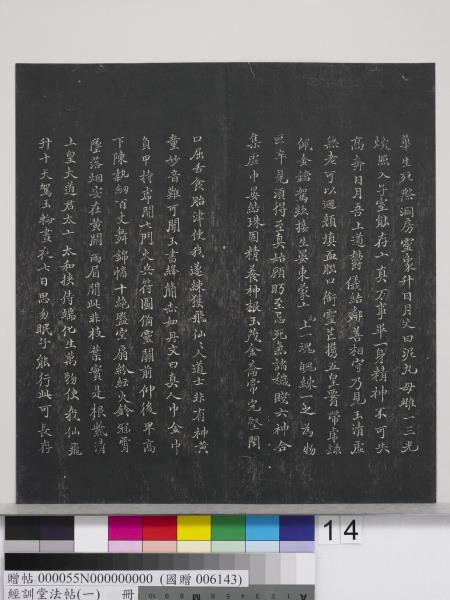 華生死際洞房靈象斗日月父曰泥丸母雌一三光
煥照入子室能存玄真万事畢一身精神不可失
高奔日月吾上道鬱儀結鄰善相守乃見玉清虛
無老可以迴顏填血腦口銜靈芒携五皇帶虎籙
佩金璫駕欻接生宴東蒙玄上一魂魄練一之為物
叵卒見須得至真始顧眄至忌死氣諸穢賤六神合
集虛中宴結珠固精養神根玉金籥常完堅閉
口屈舌食胎津使我遂練獲飛仙仙人道士非有神黃
童妙音難可聞玉書絳簡赤如丹文曰真人巾金巾
負甲持符開七門火兵符圖備靈關前仰後卑高
下陳執劒百丈舞錦幡十絕盤空扇紛紜火鈴冠霄
墜落烟安在黃闕兩眉間此非枝葉實是根紫清
上皇大道君太玄太和挾侍端化生萬物使我仙飛
升十天駕玉輪晝夜七日思勿眠子能行此可長存
14
贈帖 000055N000000000 (國贈 006143)
經訓堂法帖(一) 冊